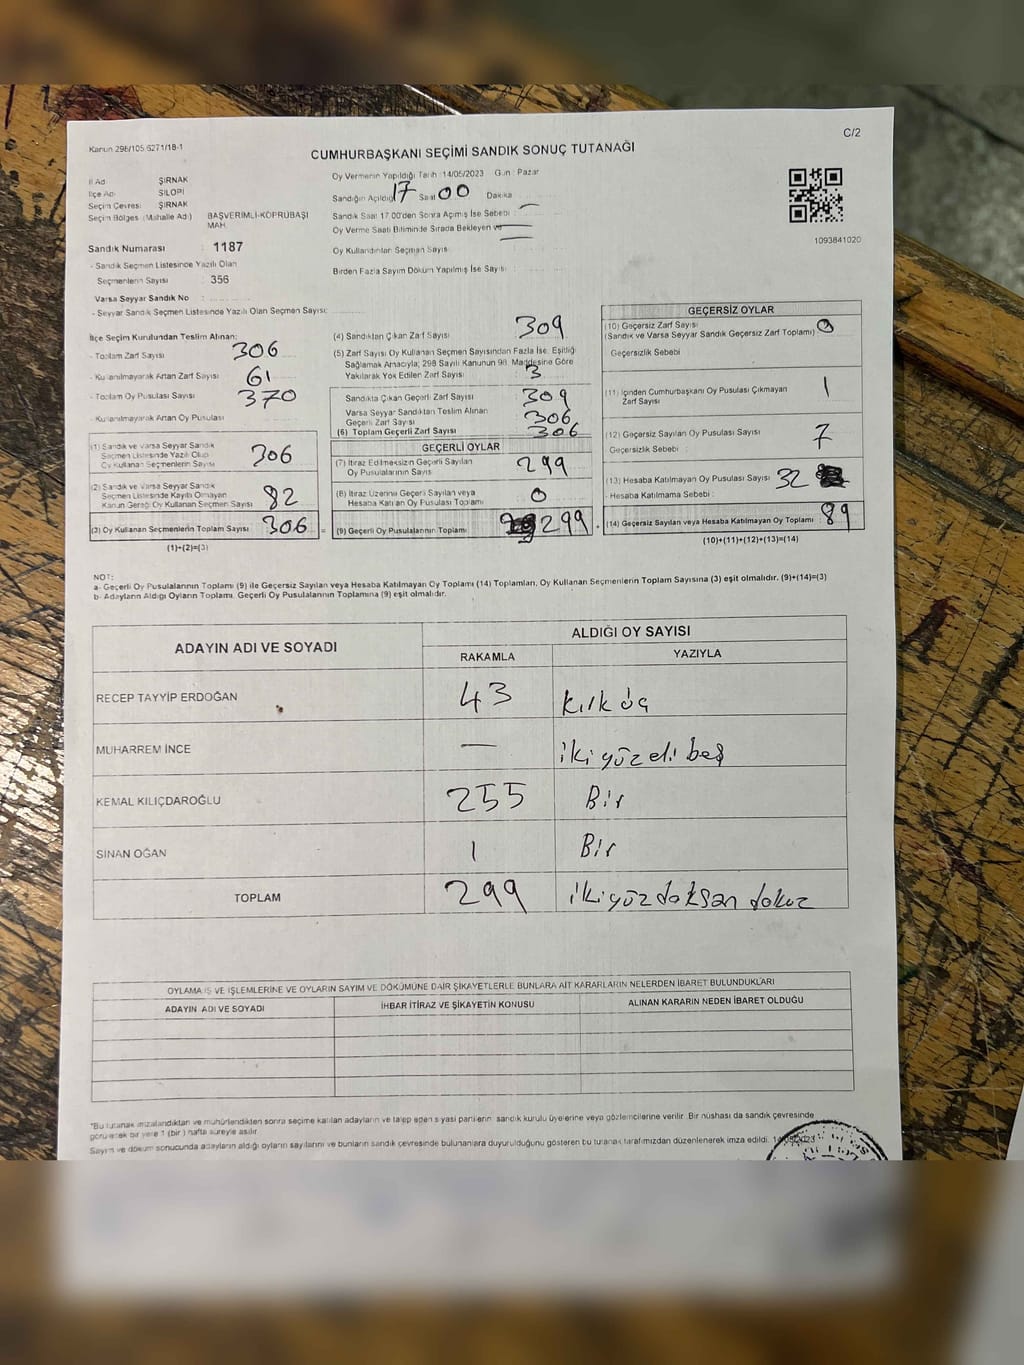 C/2
Kanun 298/105 6271/18-1
CUMHURBAŞKANI SEÇİMİ SANDIK SONUÇ TUTANAĞI
İl Adı ŞIRNAK
İlçe Adı SİLOPİ
Seçim Çevresi ŞIRNAK
Seçim Bölgesi (Mahalle Adı) BAŞVERİMLİ-KÖPRÜBAŞI
MAH.
Sandık Numarası : 1187
- Sandık Seçmen Listesinde Yazılı Olan
Seçmenlerin Sayısı : 356
Varsa Seyyar Sandık No :
- Seyyar Sandık Seçmen Listesinde Yazılı Olan Seçmen Sayısı:
Oy Vermenin Yapıldığı Tarih :14/05/2023 Gün : Pazar
Sandığın Açıldığı 17 Saat 00 Dakika
Sandık Saat 17.00'den Sonra Açmış İse Sebebi :
Oy Verme Saati Bitiminde Sırada Bekleyen ve
Oy Kullandırılan Seçmen Sayısı
Birden Fazla Sayım Döküm Yapılmış İse Sayısı :
1093841020
İlçe Seçim Kurulundan Teslim Alınan:
- Toplam Zarf Sayısı 306
- Kullanılmayarak Artan Zarf Sayısı 61
- Toplam Oy Pusulası Sayısı 370
- Kullanılmayarak Artan Oy Pusulası
(1) Sandık ve Varsa Seyyar Sandık
Seçmen Listesinde Yazılı Olup
Oy Kullanan Seçmenlerin Sayısı 306
(2) Sandık ve Varsa Seyyar Sandık
Seçmen Listesinde Kayıtlı Olmayan
Kanun Gereği Oy Kullanan Seçmen Sayısı 82
(3) Oy Kullanan Seçmenlerin Toplam Sayısı 306 =
(1)+(2)=(3)
(4) Sandıktan Çıkan Zarf Sayısı 309
(5) Zarf Sayısı Oy Kullanan Seçmen Sayısından Fazla İse, Eşitliği
Sağlamak Amacıyla; 298 Sayılı Kanunun 98. Maddesine Göre
Yakılarak Yok Edilen Zarf Sayısı 3
Sandıkta Çıkan Geçerli Zarf Sayısı 309
Varsa Seyyar Sandıktan Teslim Alınan
Geçerli Zarf Sayısı 306
(6) Toplam Geçerli Zarf Sayısı 306
GEÇERLİ OYLAR
(7) İtiraz Edilmeksizin Geçerli Sayılan
Oy Pusulalarının Sayısı 299
(8) İtiraz Üzerine Geçerli Sayılan veya
Hesaba Katılan Oy Pusulası Toplamı 0
(9) Geçerli Oy Pusulalarının Toplamı 299 +
GEÇERSİZ OYLAR
(10) Geçersiz Zarf Sayısı 0
(Sandık ve Varsa Seyyar Sandık Geçersiz Zarf Toplamı)
Geçersizlik Sebebi
(11) İçinden Cumhurbaşkanı Oy Pusulası Çıkmayan
Zarf Sayısı 1
(12) Geçersiz Sayılan Oy Pusulası Sayısı 7
Geçersizlik Sebebi :
(13) Hesaba Katılmayan Oy Pusulası Sayısı 32
- Hesaba Katılmama Sebebi :
(14) Geçersiz Sayılan veya Hesaba Katılmayan Oy Toplamı : 89
(10)+(11)+(12)+(13)=(14)
NOT:
a- Geçerli Oy Pusulalarının Toplamı (9) ile Geçersiz Sayılan veya Hesaba Katılmayan Oy Toplamı (14) Toplamları, Oy Kullanan Seçmenlerin Toplam Sayısına (3) eşit olmalıdır. (9)+(14)=(3)
b- Adayların Aldığı Oyların Toplamı, Geçerli Oy Pusulalarının Toplamına (9) eşit olmalıdır.
ADAYIN ADI VE SOYADI ALDIĞI OY SAYISI
RAKAMLA YAZIYLA
RECEP TAYYİP ERDOĞAN 43 Kırk üç
MUHARREM İNCE — iki yüz eli beş
KEMAL KILIÇDAROĞLU 255 Bir
SİNAN OĞAN 1 Bir
TOPLAM 299 iki yüz doksan dokuz
OYLAMA İŞ VE İŞLEMLERİNE VE OYLARIN SAYIM VE DÖKÜMÜNE DAİR ŞİKAYETLERLE BUNLARA AİT KARARLARIN NELERDEN İBARET BULUNDUKLARI
ADAYIN ADI VE SOYADI İHBAR İTİRAZ VE ŞİKAYETİN KONUSU ALINAN KARARIN NEDEN İBARET OLDUĞU
*Bu tutanak imzalandıktan ve mühürlendikten sonra seçime katılan adayların ve talep eden siyasi partilerin sandık kurulu üyelerine veya gözlemcilerine verilir. Bir nüshası da sandık çevresinde
görülecek bir yere 1 (bir) hafta süreyle asılır.
Sayım ve döküm sonucunda adayların aldığı oyların sayılarını ve bunların sandık çevresinde bulunanlara duyurulduğunu gösteren bu tutanak tarafımızdan düzenlenerek imza edildi. 14/05/2023